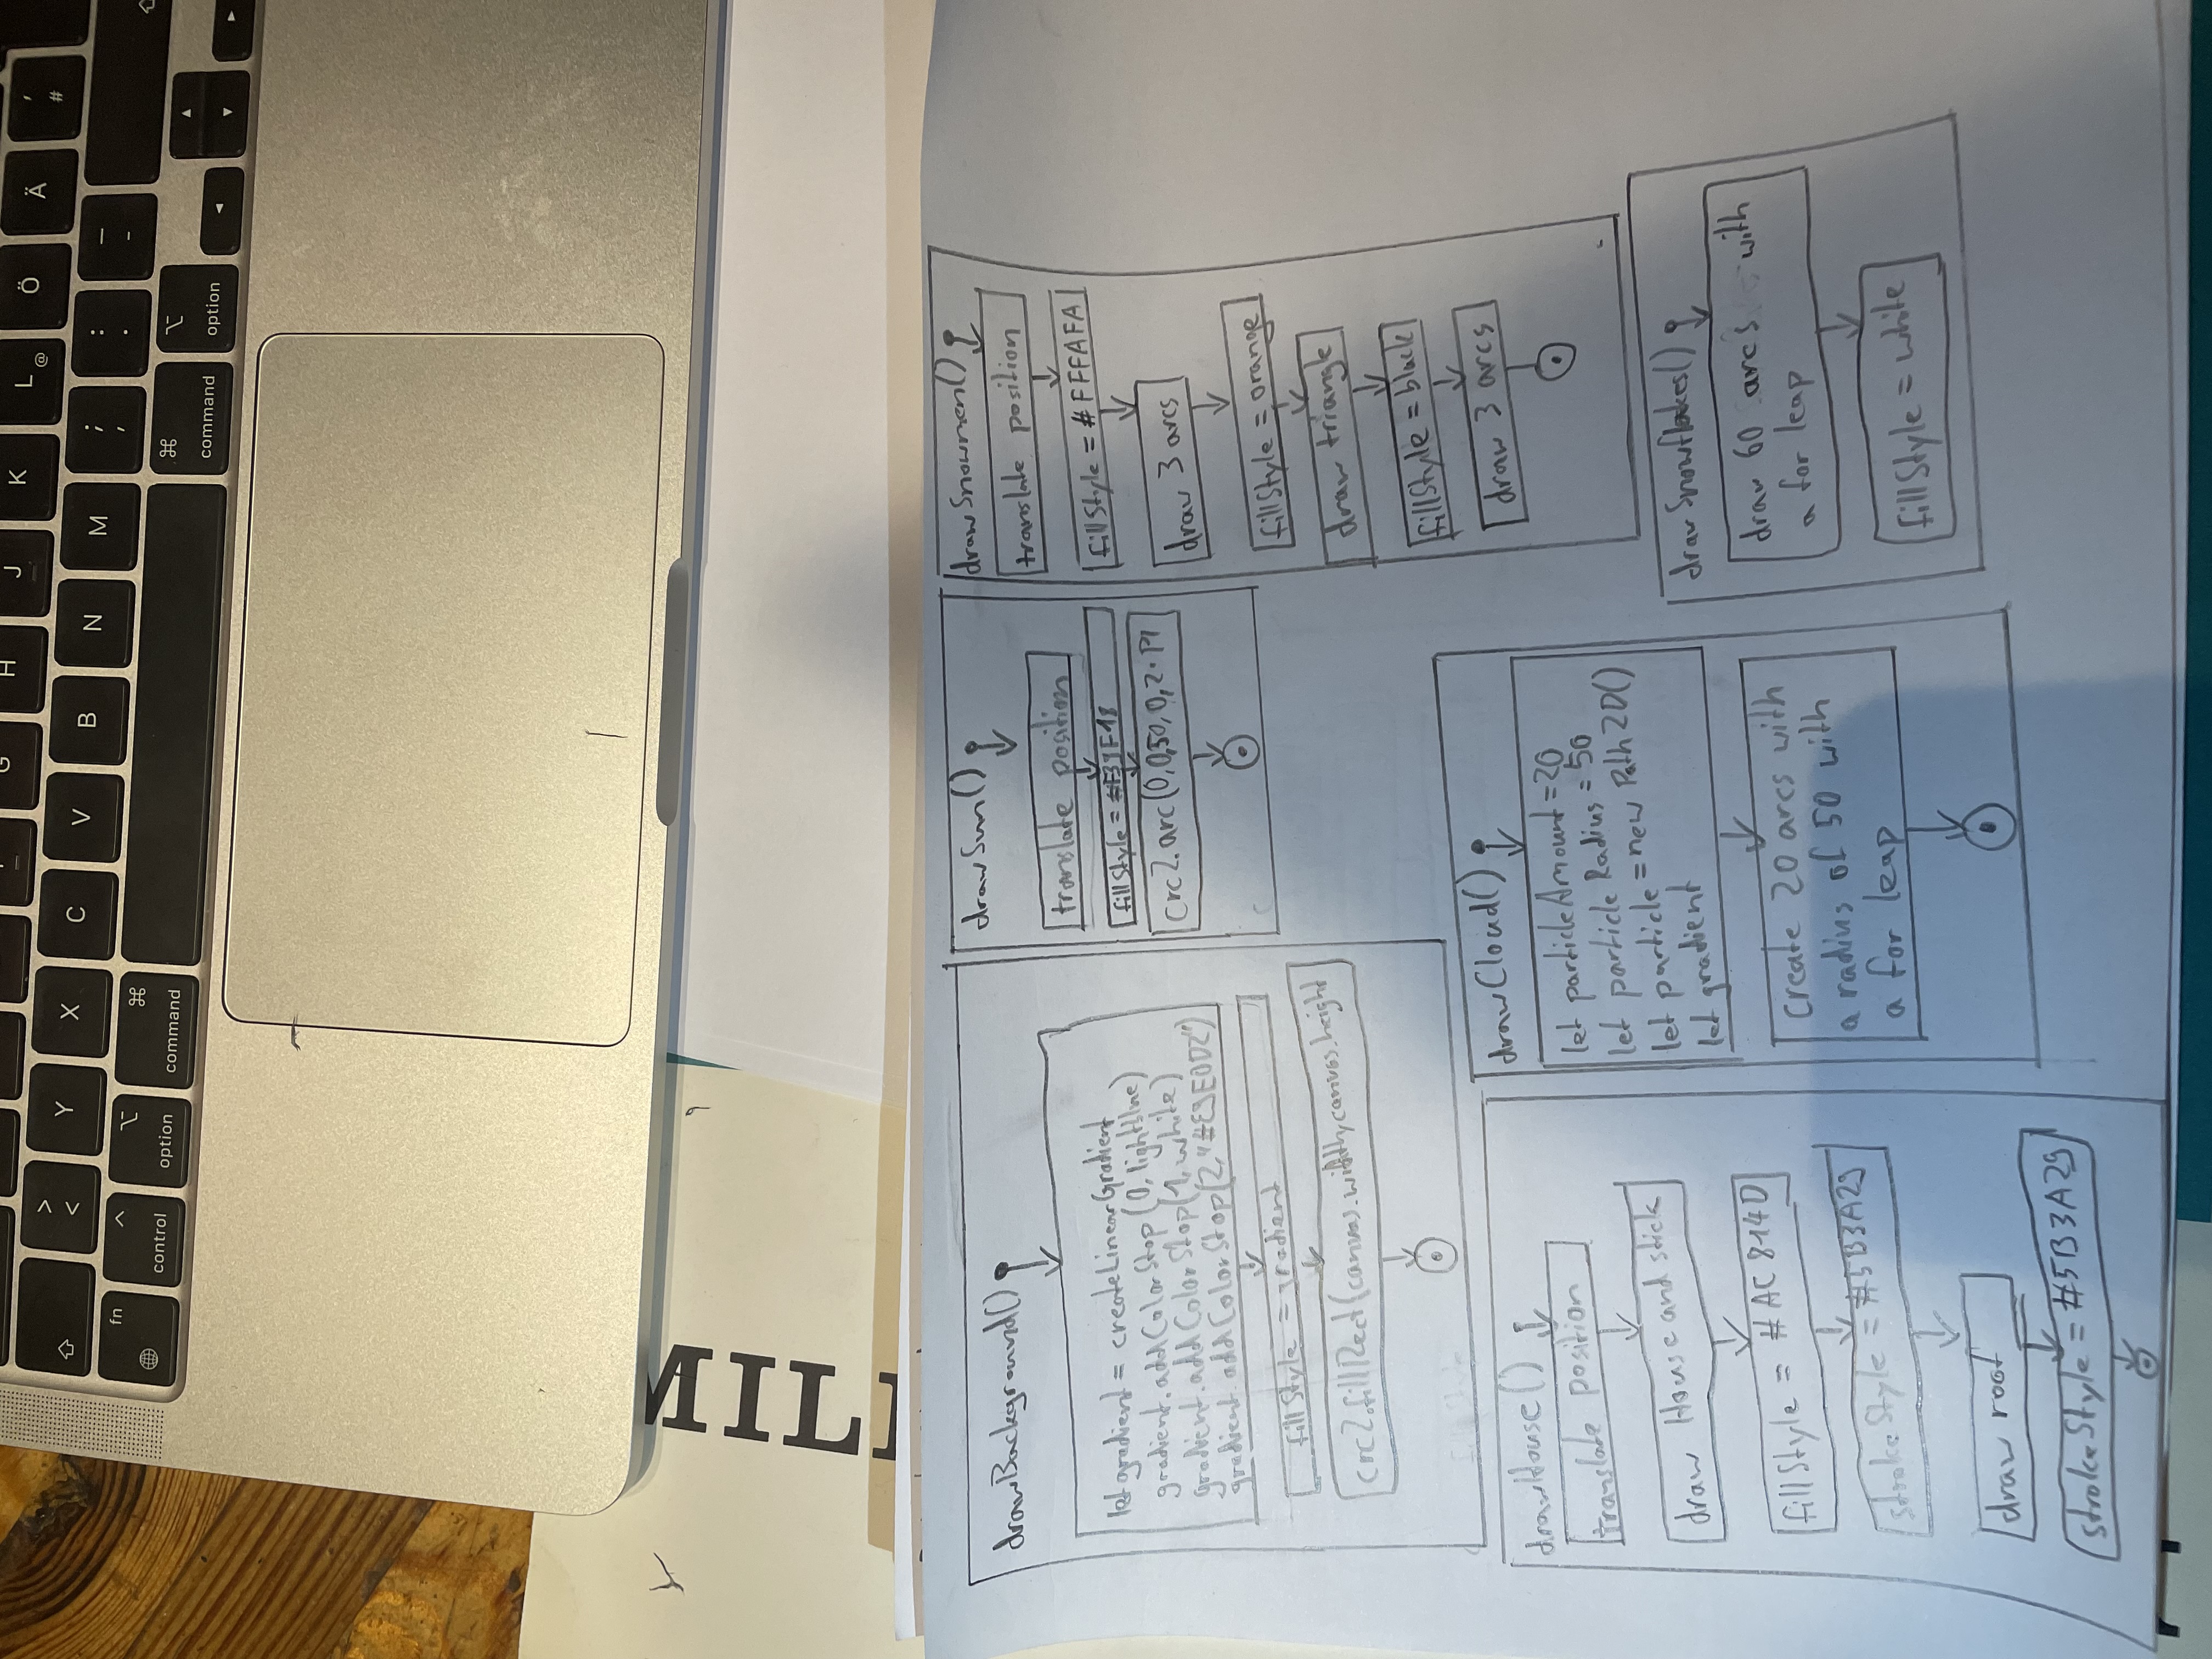 G H J K L @ Ö Ä ' #
> < Y X C V B N M ; , : . _ -
fn control option command command option
MIL
drawBackground()
let gradient = createLinearGradient
gradient.addColorStop(0, lightblue)
gradient.addColorStop(1, white)
gradient.addColorStop(2, "#E9E0D2")
fillStyle = gradient
crc2.fillRect(canvas.width, canvas.height
fillStyle
drawSun()
translate position
fillStyle =
crc2.arc(0,0,50,0,2·PI
drawSnowmen()
translate position
fillStyle = #FFFAFA
draw 3 arcs
fillStyle = orange
draw triangle
fillStyle = black
draw 3 arcs
drawHouse()
translate position
draw House and stick
fillStyle = #AC814D
strokeStyle = #5B3A29
draw roof
strokeStyle = #5B3A29
drawCloud()
let particleAmount = 20
let particleRadius = 50
let particle = new Path2D()
let gradient
create 20 arcs with
a radius of 50 with
a for leap
drawSnowflakes()
draw 60 arcs with
a for leap
fillStyle = white